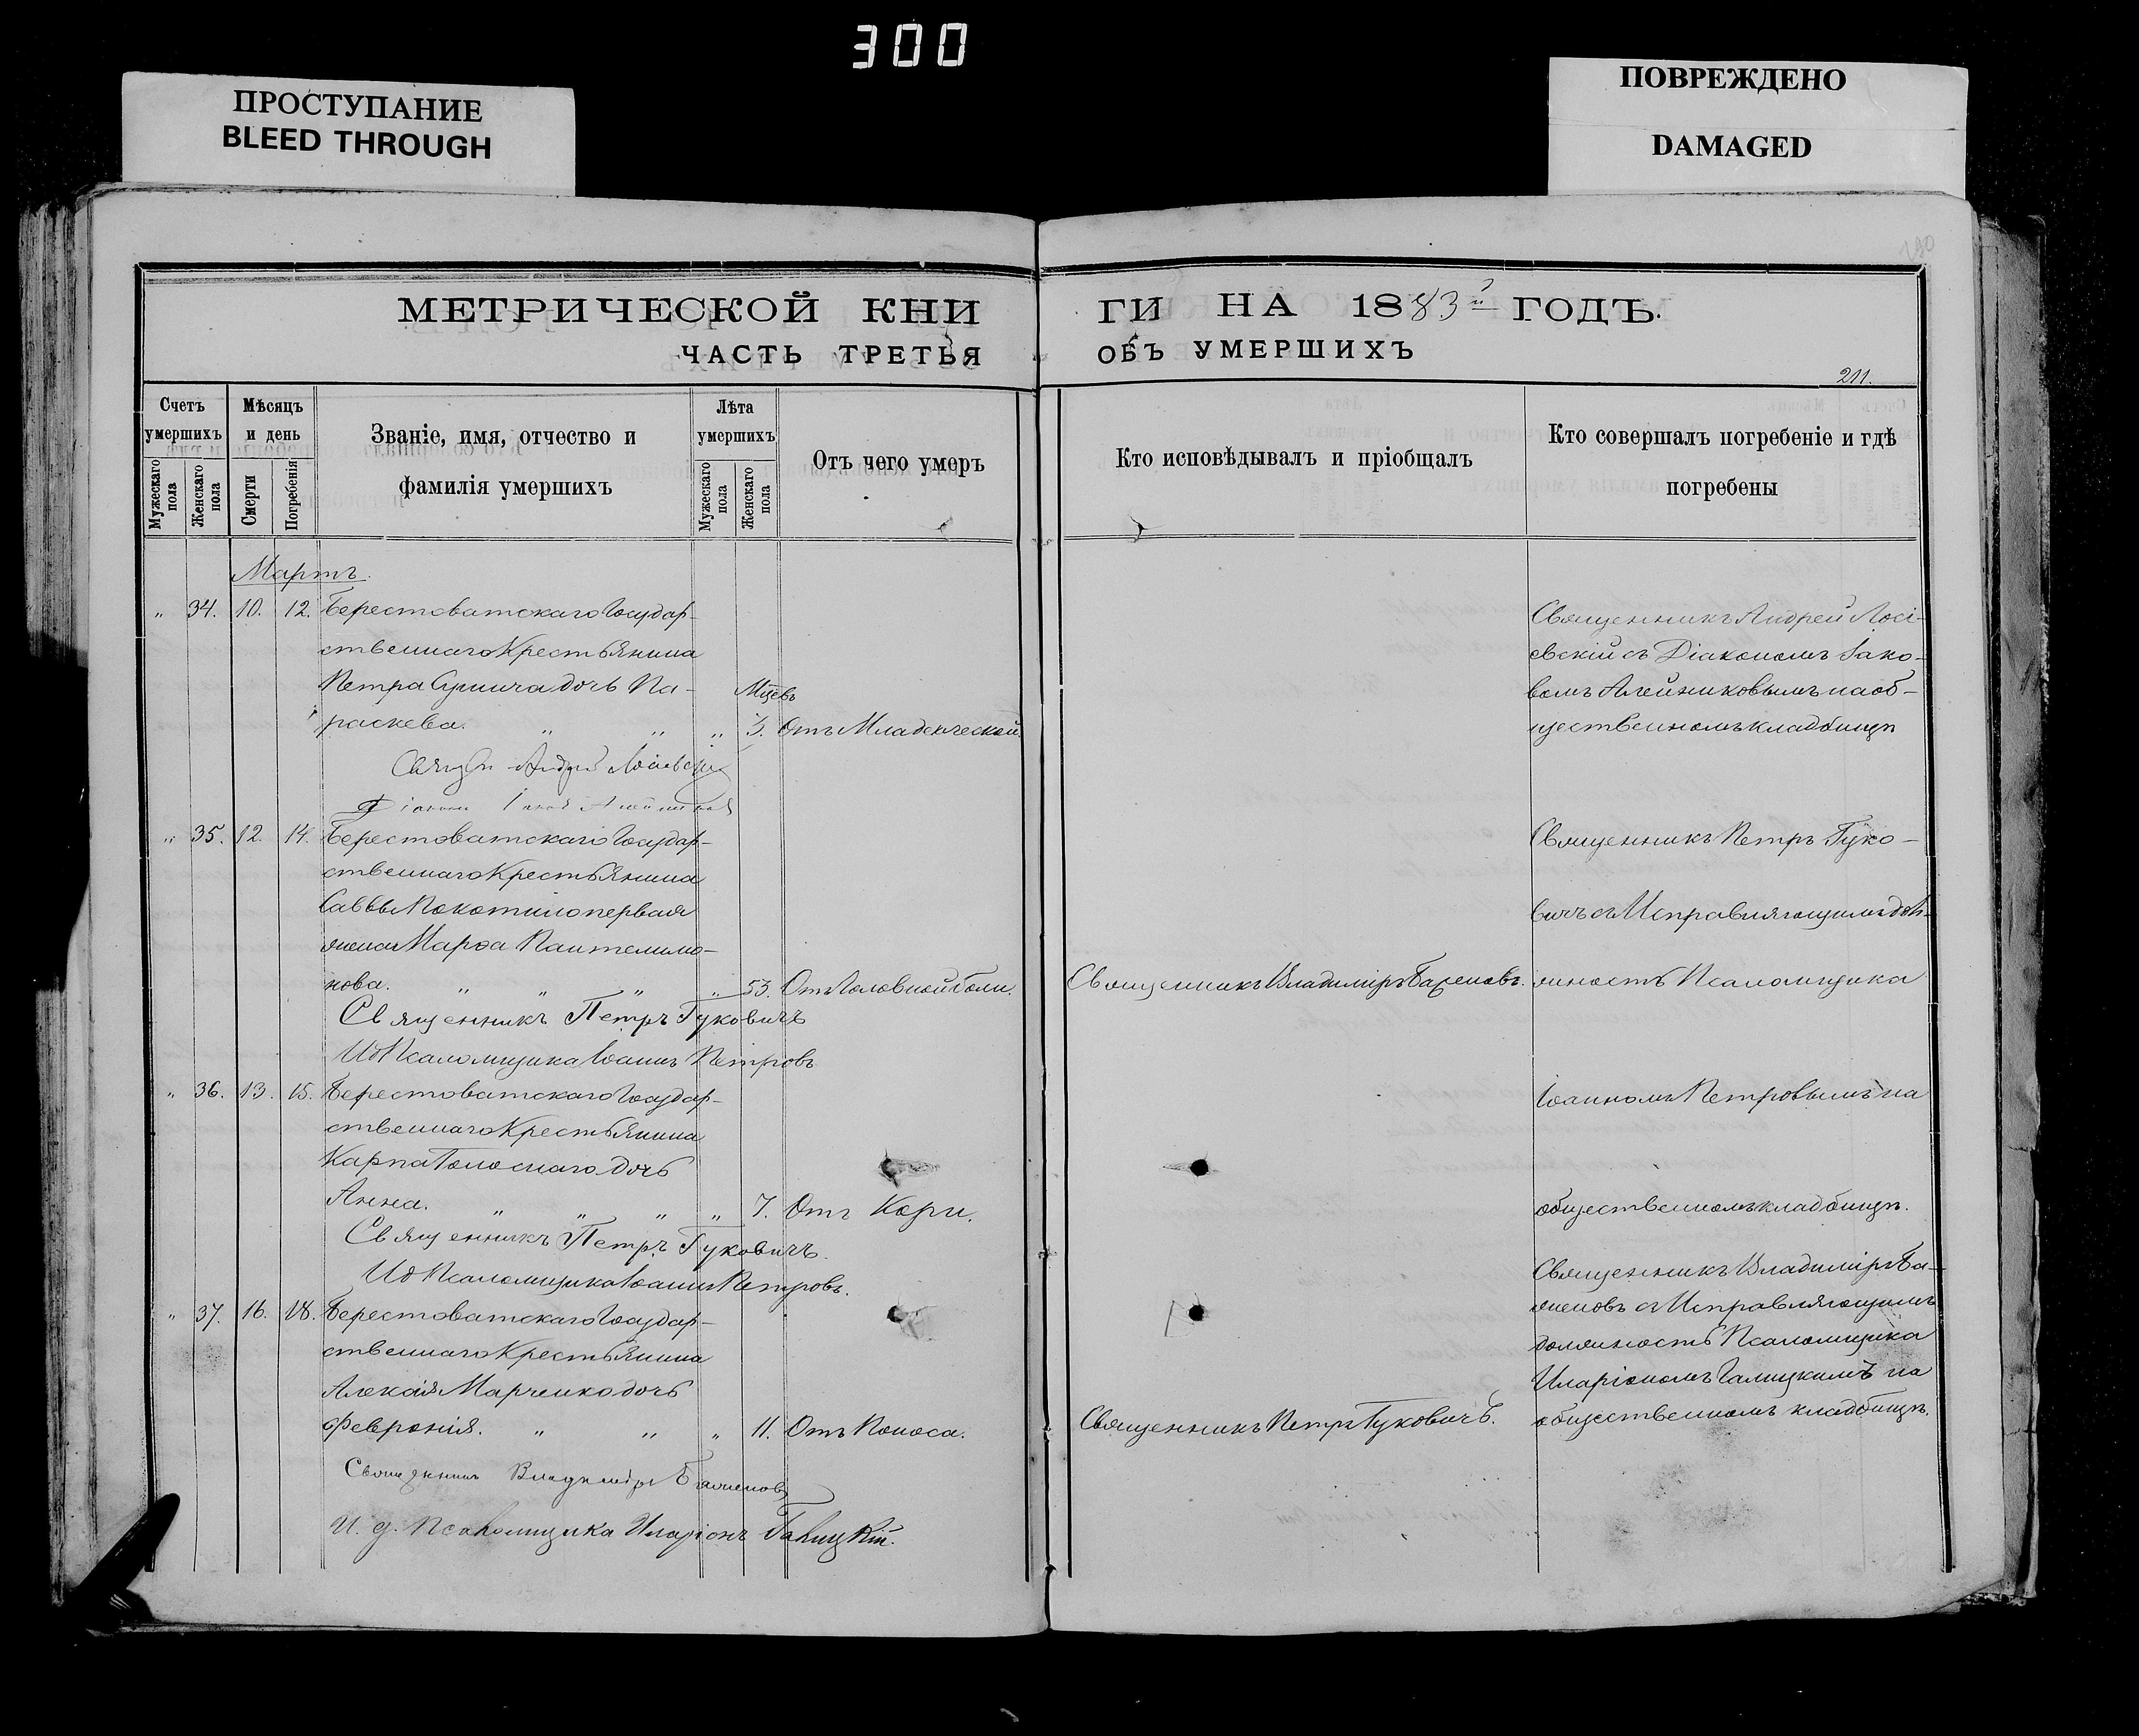 300
ПРОСТУПАНИЕ
BLEED THROUGH
ПОВРЕЖДЕНО
DAMAGED
МЕТРИЧЕСКОЙ КНИ
ЧАСТЬ ТРЕТЬЯ
Счетъ умершихъ
Мужескаго пола
Женскаго пола
Мѣсяцъ и день
Смерти
Погребенія
Званіе, имя, отчество и
фамилія умершихъ
Лѣта умершихъ
Мужескаго пола
Женскаго пола
Отъ чего умеръ
Мартъ.
„ 34. 10. 12. Берестоватскаго Государ-
ственнаго Крестьянина
Петра дочь Па-
Мцевъ
раскева. „ „ „ 3. Отъ Младенческой
Андрей Лосіевскій
Діаконъ
„ 35. 12. 14. Берестоватскаго Государ-
ственнаго Крестьянина
Саввы Покотило первая
жена Марѳа Пантелимо-
нова. „ „ „ „ 53. Отъ Головной боли.
Священникъ Петръ Гуковичъ
ИдПсаломщика Іоаннъ Петровъ
„ 36. 13. 15. Берестоватскаго Государ-
ственнаго Крестьянина
Карпа Голоснаго дочь
Анна. „ „ „ „ 7. Отъ Кори.
Священникъ Петръ Гуковичъ.
ИдПсаломщика Іоаннъ Петровъ.
„ 37. 16. 18. Берестоватскаго Государ-
ственнаго Крестьянина
Алексія Марченко дочь
Февронія. „ „ „ 11. Отъ Поноса.
Священникъ Владиміръ Баженовъ
И. д. Псаломщика Иларіонъ Галицкій.
ГИ НА 1883й ГОДЪ.
ОБЪ УМЕРШИХЪ
211.
Кто исповѣдывалъ и пріобщалъ
Кто совершалъ погребеніе и гдѣ
погребены
Священникъ Андрей Лосі-
евскій съ Діакономъ Іако-
вомъ Алейниковымъ на об-
щественномъ кладбищѣ
Священникъ Петръ Гуко-
вичъ съ Исправляющимъ дол-
Священникъ Владиміръ Баженовъ. жность Псаломщика
Іоанномъ Петровымъ на
общественномъ кладбищѣ.
Священникъ Владиміръ Ба-
женовъ съ Исправляющимъ
должность Псаломщика
Иларіономъ Галицкимъ на
Священникъ Петръ Гуковичъ. общественномъ кладбищѣ.